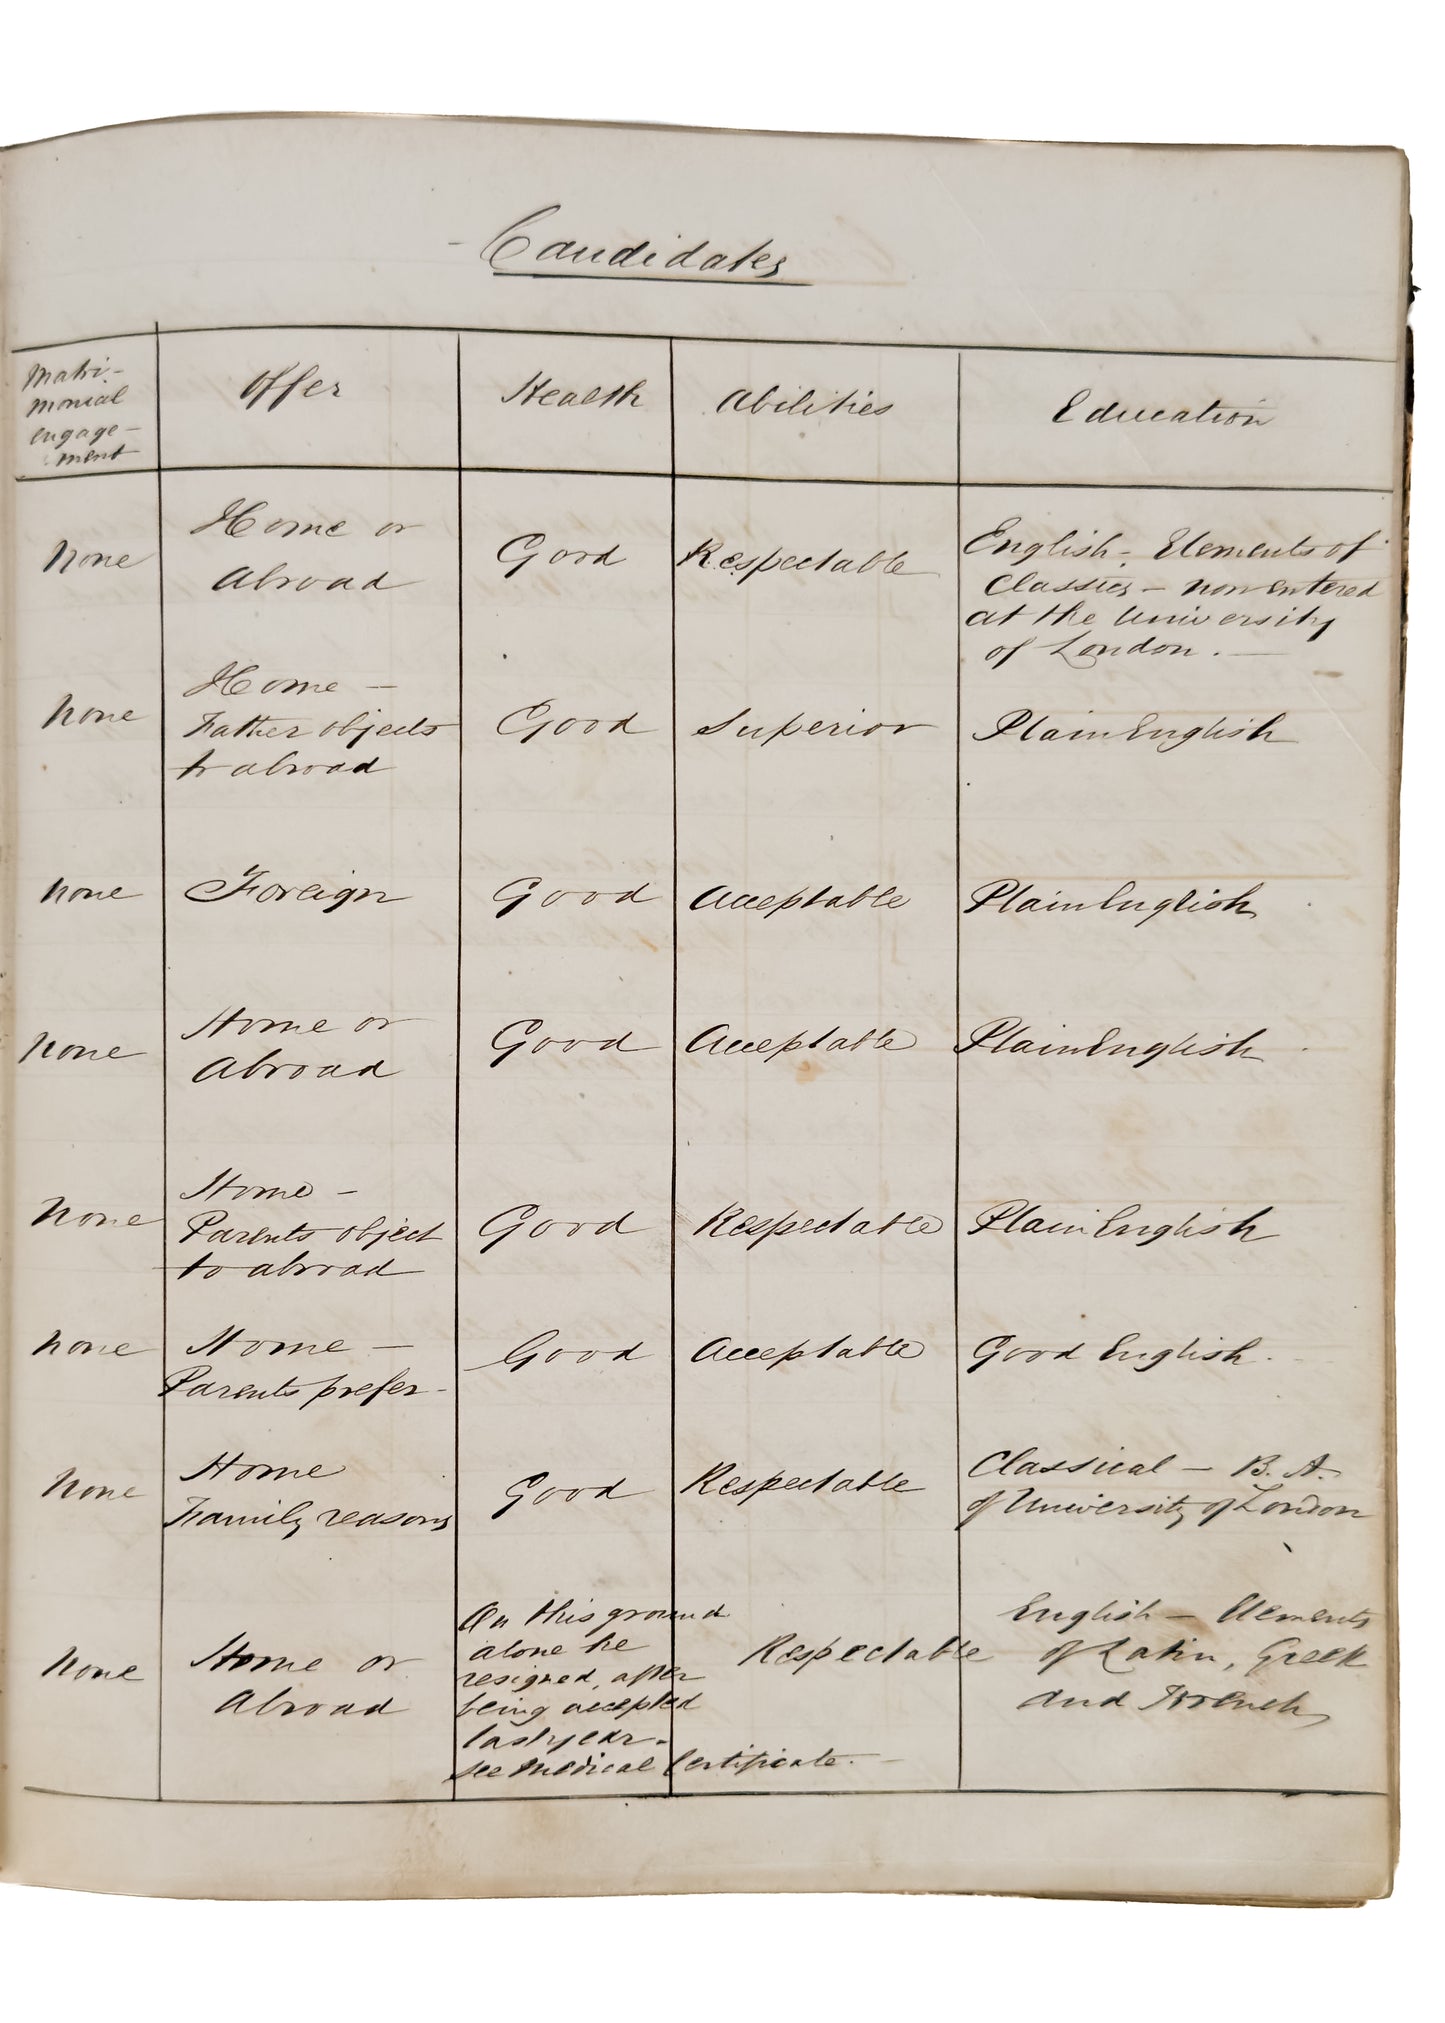 Candidates
Matri-
monial
engage-
ment
Offer
Health
Abilities
Education
None
Home or
Abroad
Good
Respectable
English - Elements of
Classics - now entered
at the University
of London. -
None
Home -
Father objects
to abroad
Good
Superior
Plain English
None
Foreign
Good
Acceptable
Plain English
None
Home or
Abroad
Good
Acceptable
Plain English
None
Home -
Parents object
to abroad
Good
Respectable
Plain English
None
Home -
Parents prefer -
Good
Acceptable
Good English.
None
Home
Family reasons
Good
Respectable
Classical - B. A.
of University of London
None
Home or
Abroad
On this ground
alone he
resigned, after
being accepted
last year -
see Medical Certificate. -
Respectable
English - Elements
of Latin, Greek
and French